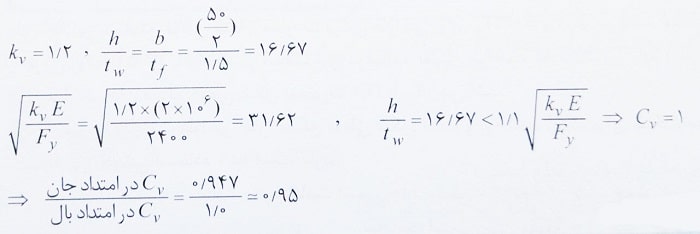 k_v = ۱/۲ , h/t_w = b/t_f = (۵۰/۲)/۱/۵ = ۱۶/۶۷
√(k_v E/F_y) = √(۱/۲×(۲×۱۰^۶)/۲۴۰۰) = ۳۱/۶۲ , h/t_w = ۱۶/۶۷ < ۱/۱ √(k_v E/F_y) ⇒ C_v = ۱
⇒ C_v در امتداد جان / C_v در امتداد بال = ۰/۹۴۷ / ۱/۰ ≃ ۰/۹۵